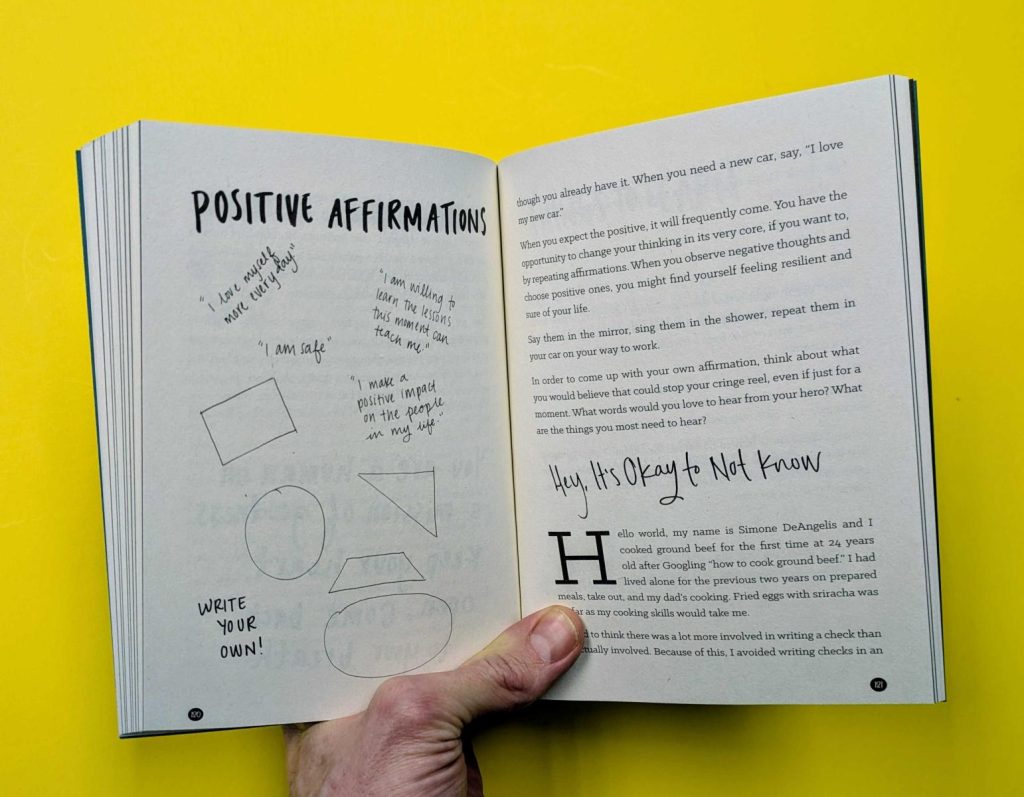 POSITIVE AFFIRMATIONS
"I love myself
more every day"
"I am willing to
learn the lessons
this moment can
teach me."
"I am safe"
"I make a
positive impact
on the people
in my life."
WRITE
YOUR
OWN!
120
though you already have it. When you need a new car, say, “I love
my new car.”
When you expect the positive, it will frequently come. You have the
opportunity to change your thinking in its very core, if you want to,
by repeating affirmations. When you observe negative thoughts and
choose positive ones, you might find yourself feeling resilient and
sure of your life.
Say them in the mirror, sing them in the shower, repeat them in
your car on your way to work.
In order to come up with your own affirmation, think about what
you would believe that could stop your cringe reel, even if just for a
moment. What words would you love to hear from your hero? What
are the things you most need to hear?
Hey, It's Okay to Not Know
Hello world, my name is Simone DeAngelis and I
cooked ground beef for the first time at 24 years
old after Googling “how to cook ground beef.” I had
lived alone for the previous two years on prepared
meals, take out, and my dad's cooking. Fried eggs with sriracha was
far as my cooking skills would take me.
to think there was a lot more involved in writing a check than
involved. Because of this, I avoided writing checks in an
121